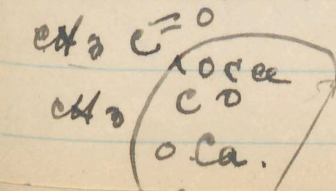 CH3 C=O
OCa
CH3 CO
OCa.